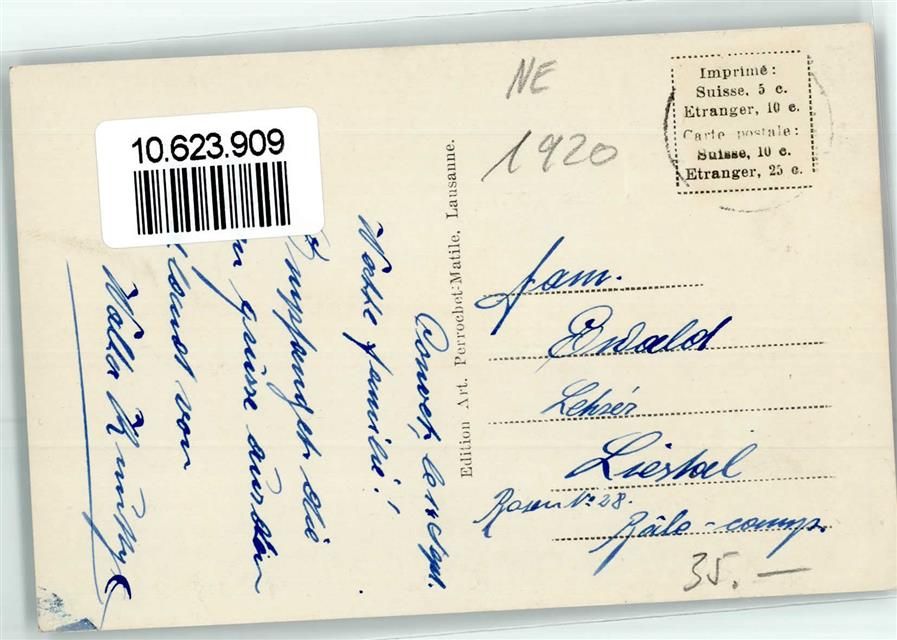 10.623.909
NE
1920
Imprimé:
Suisse, 5 c.
Etranger, 10 c.
Carte postale:
Suisse, 10 c.
Etranger, 25 c.
Edition Art. Perrochet-Matile, Lausanne.
Couvet, le 14 Sept.
familie!
Empfanget die
grüsse aus dem
von
Fam.
Ewald
Lehrer
Liestal
Rosen No 28.
Bâle-camp.
35.—